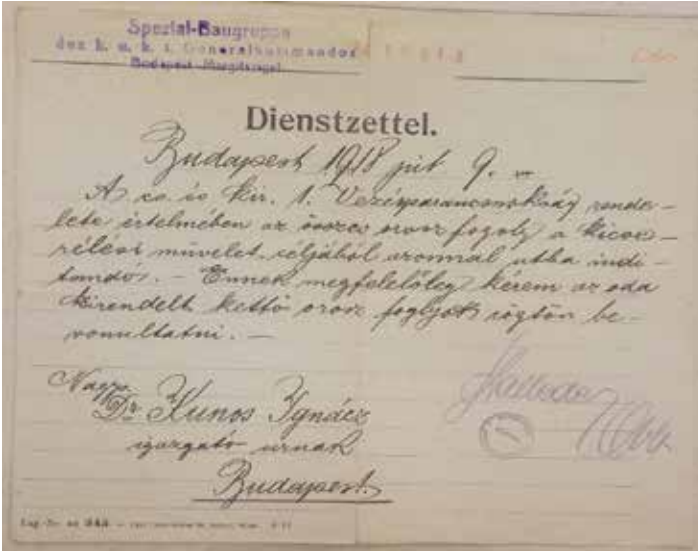 Spezial-Baugruppe
des k. u. k. 1. Generalkommandos
Budapest
Dienstzettel.
Budapest 1918 júl 9.
A cs. és kir. 1. Vezérparancsnokság rende-
lete értelmében az összes orosz fogoly a kicse-
rélési művelet céljából azonnal utba indi-
tandó. – Ennek megfelelőleg kérem az oda
kirendelt kettő orosz foglyot rögtön be-
vonultatni. –
Nagys.
Dr Kunos Ignácz
igazgató urnak
Budapest